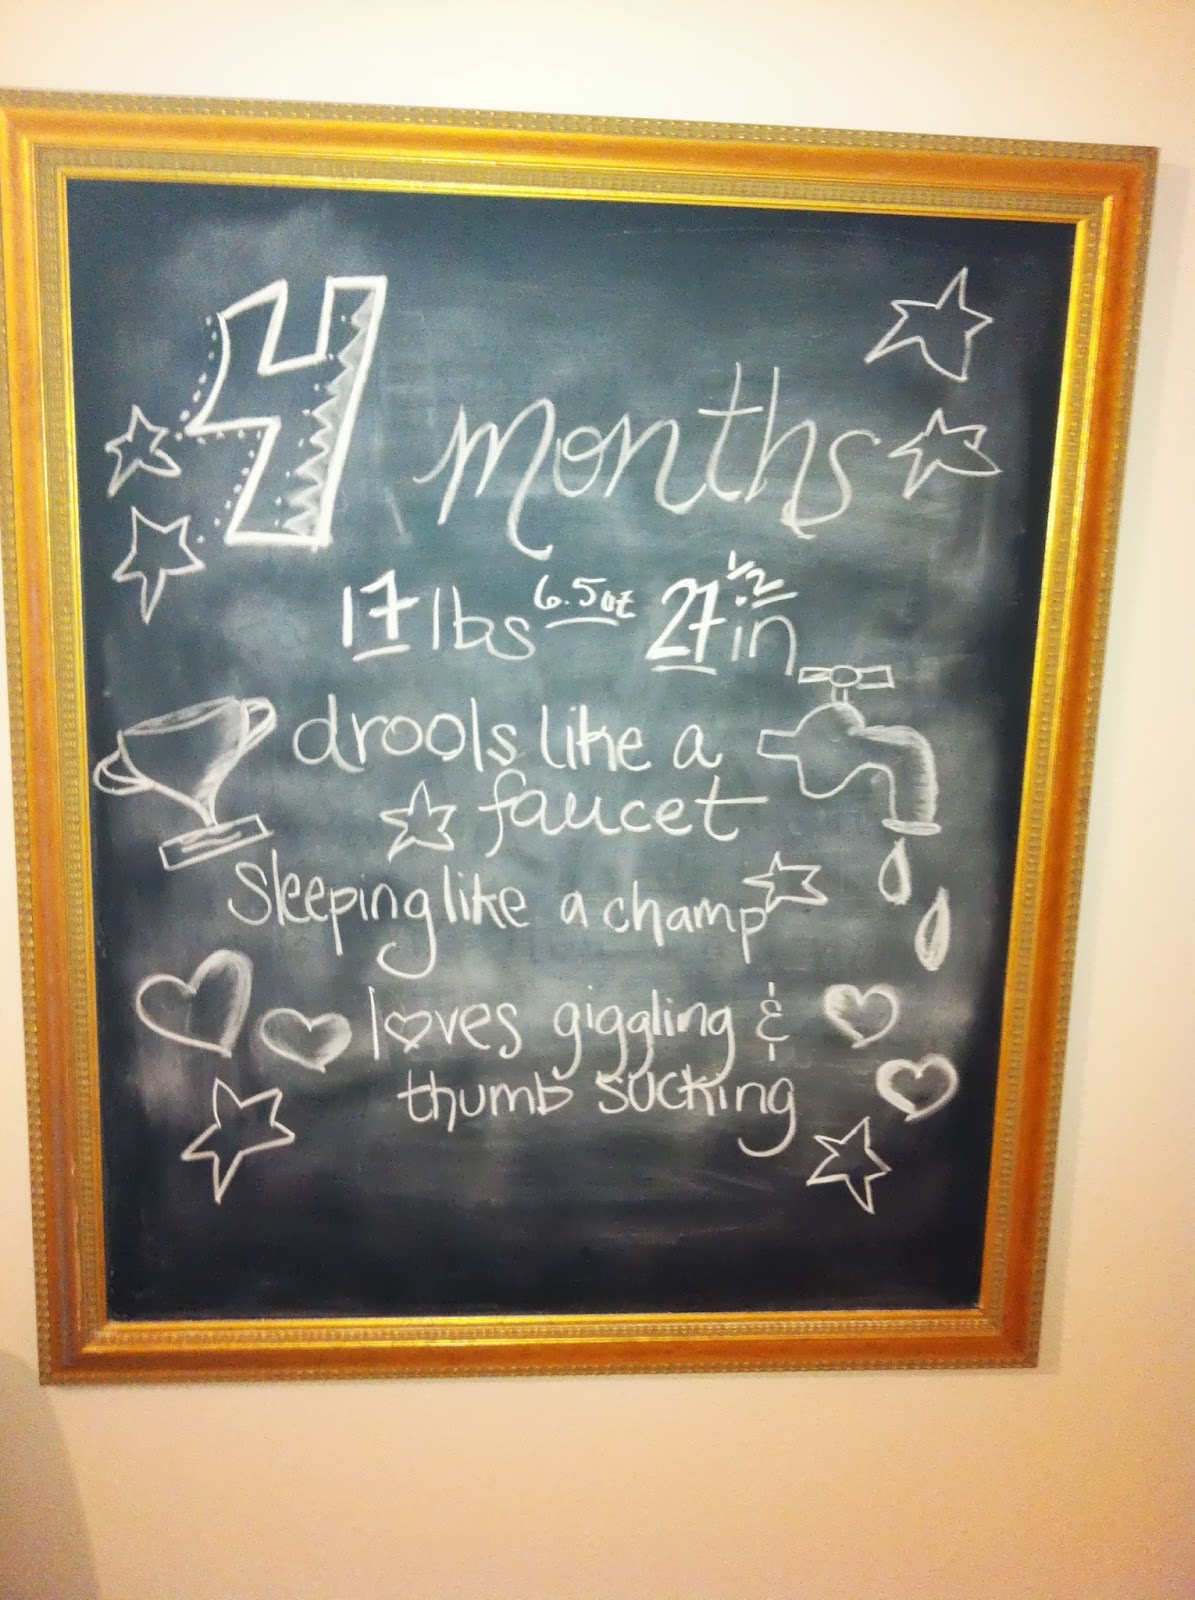 4 months
17 lbs 6.5oz 27 1/2 in
drools like a
faucet
Sleeping like a champ
loves giggling &
thumb sucking